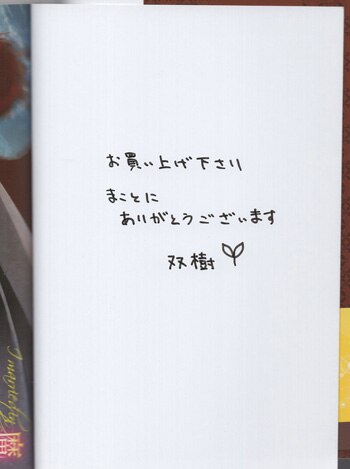 お買い上げ下さり
まことに
ありがとうございます
双樹